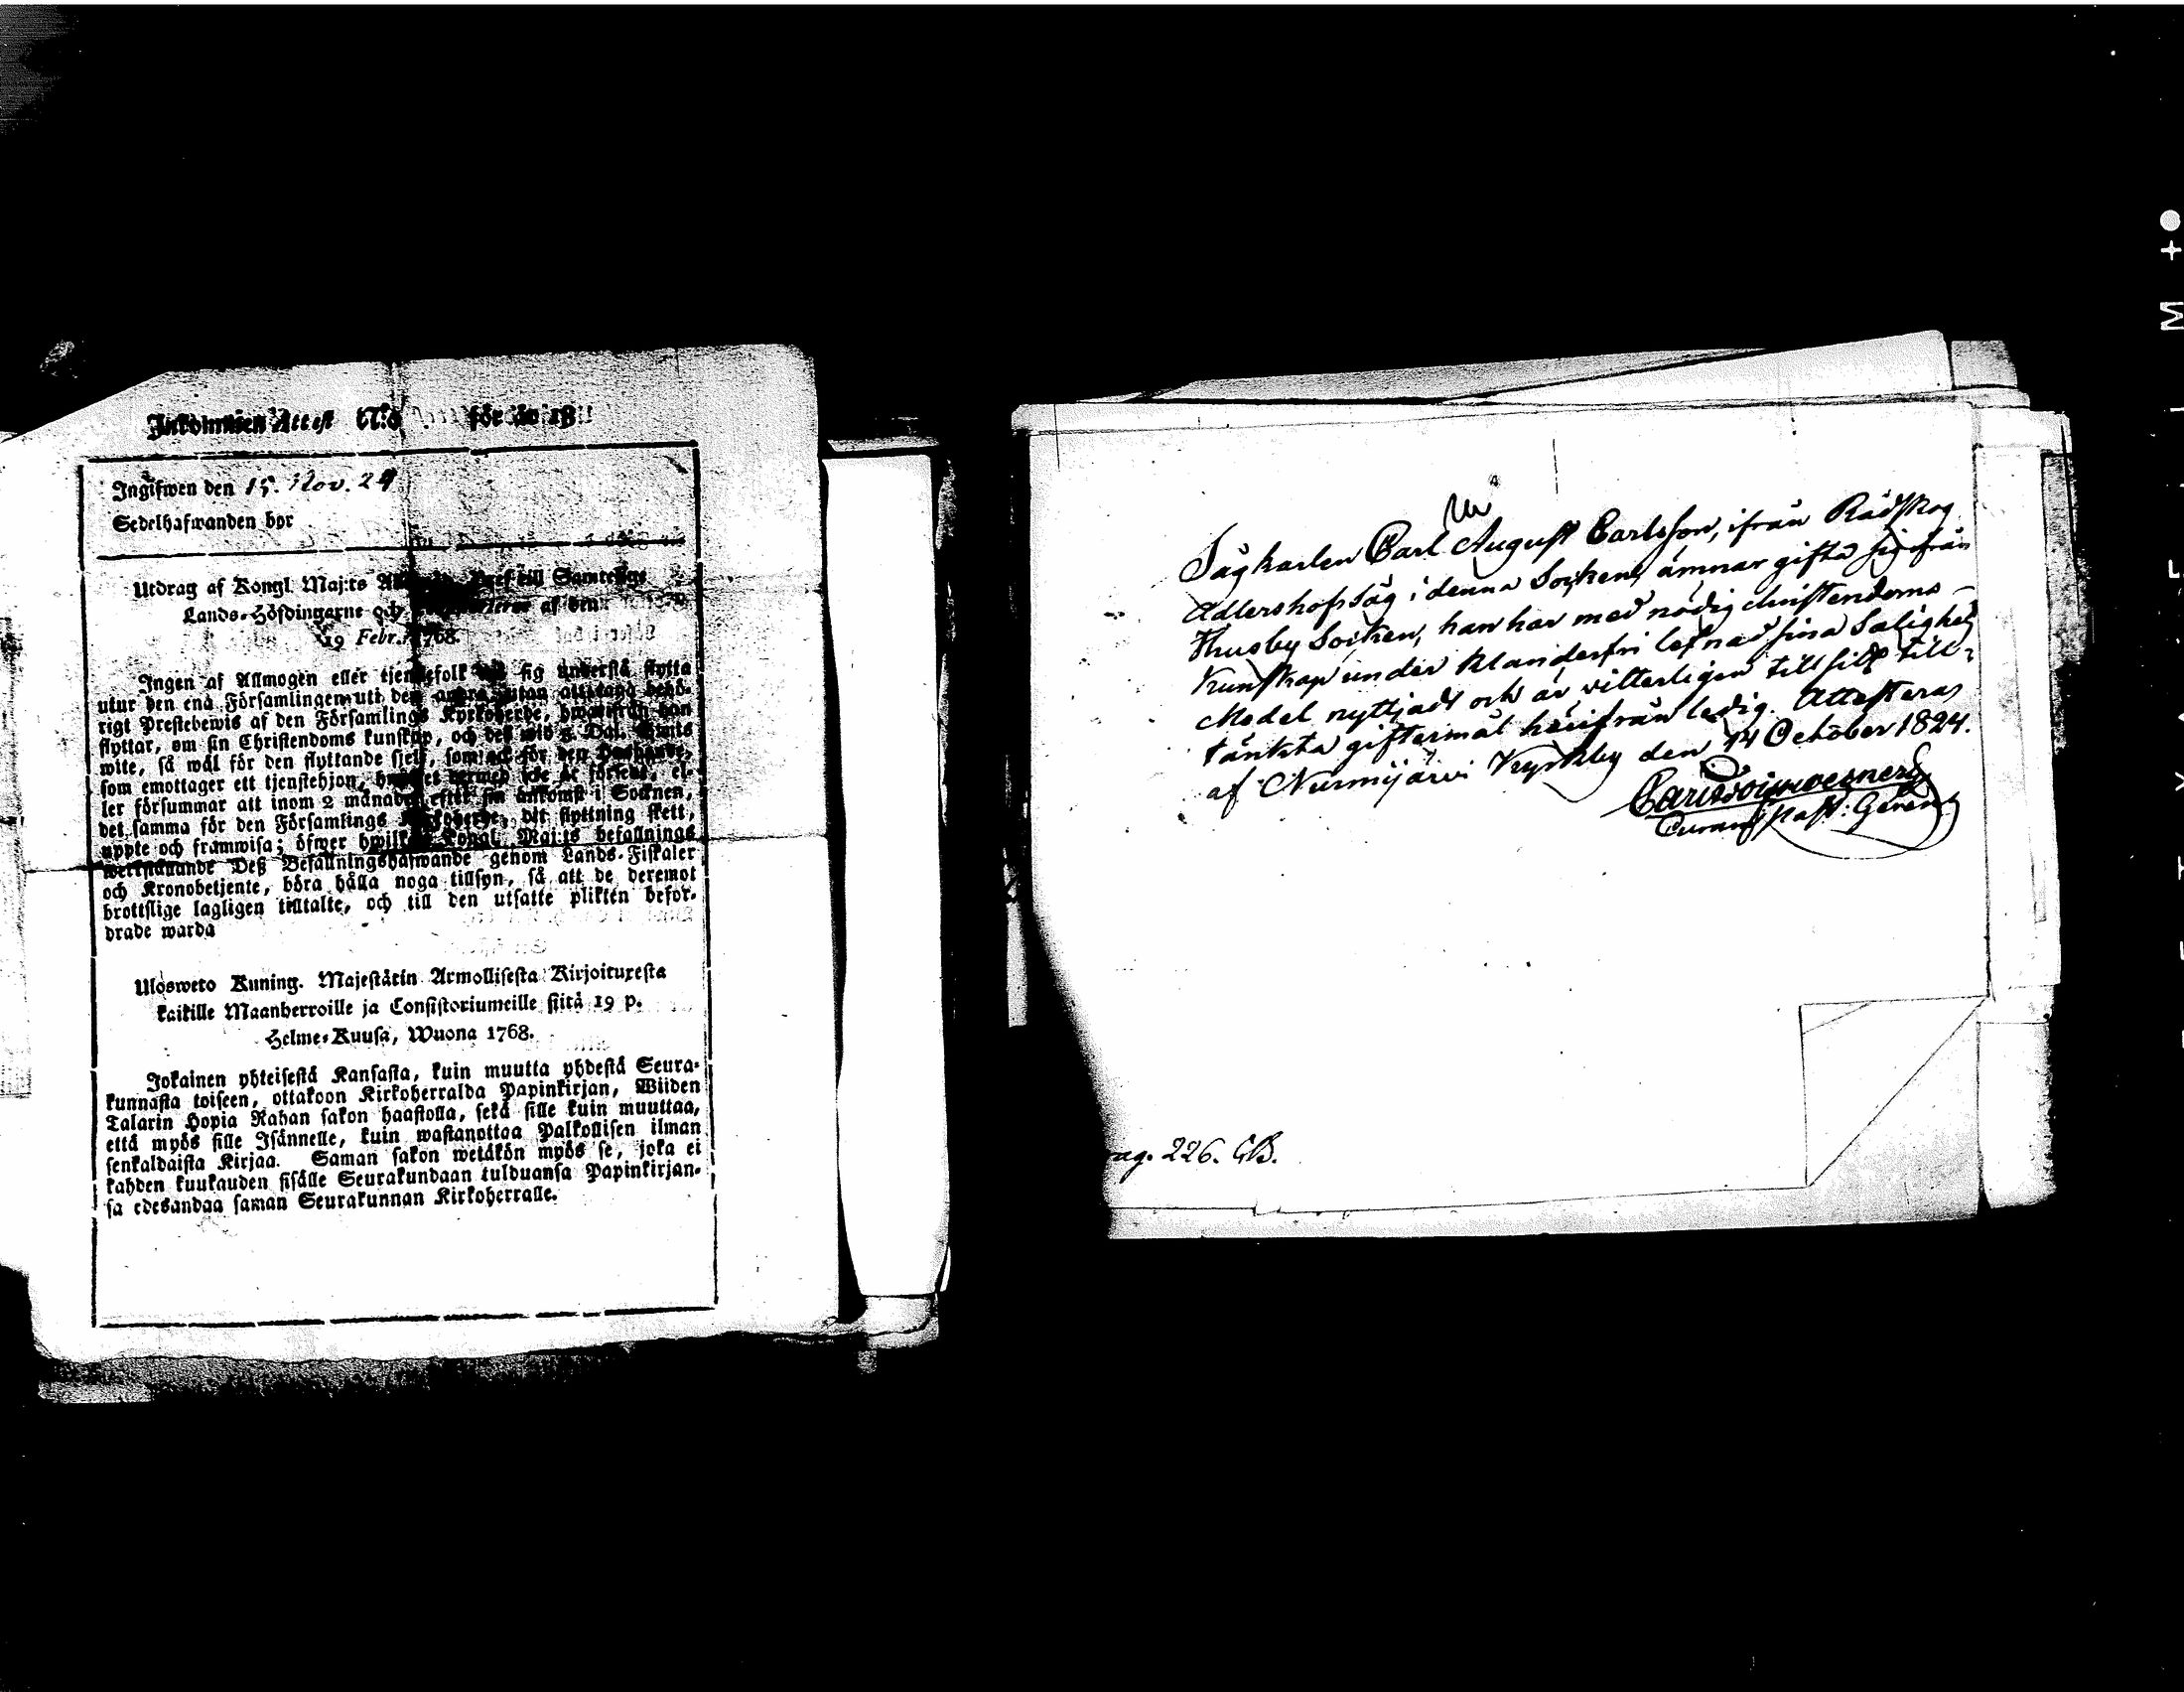 Inkommen Attest N:o för år 18
Ingifwen den 15. Nov. 24
Sedelhafwanden bor
Utdrag af Kongl. Maj:ts till Samtelige
Lands-Höfdingarne och af den
19 Febr. 1768.
Ingen af Allmogen eller tjenstefolk må sig understå flytta
utur den ena Församlingen uti den andra utan att taga behö-
rigt Prestebewis af den Församlings Kyrkoherde, hwarifrån han
flyttar, om sin Christendoms kunskap, och det wid 5 Dal. S:mts
wite, så wäl för den flyttande sjelf, som ock för den Husbonde,
som emottager ett tjenstehjon, hwilket dermed icke är försedt, el-
ler försummar att inom 2 månader efter sin ankomst i Socknen,
det samma för den Församlings Kyrkoherde, dit flyttning skett,
uppte och framwisa; öfwer hwilken Kongl. Maj:ts befallnings
werkställande Deß Befallningshafwande genom Lands-Fiskaler
och Kronobetjente, böra hålla noga tillsyn, så att de deremot
brottslige lagligen tilltalte, och till den utsatte plikten befor-
drade warda
Ulosweto Kuning. Majestätin Armollisesta Kirjoituxesta
kaikille Maanherroille ja Consistoriumeille siitä 19 p.
Helme-Kuusa, Wuona 1768.
Jokainen yhteisestä Kansasta, kuin muutta yhdestä Seura-
kunnasta toiseen, ottakoon Kirkoherralda Papinkirjan, Wiiden
Talarin Hopia Rahan sakon haastolla, sekä sille kuin muuttaa,
että myös sille Isännelle, kuin wastanottaa Palkollisen ilman
senkaldaista Kirjaa. Saman sakon wetäkön myös se, joka ei
kahden kuukauden sisälle Seurakundaan tulduansa Papinkirjan-
sa edesandaa saman Seurakunnan Kirkoherralle.
Sågkarlen Carl August Carlsson, ifrån Rådskog
Adlershofs Såg i denna Socken, ämnar gifta sig ifrån
Thusby Socken, han har med nödig christendoms-
Kunskap under klanderfri lefnad sina Salighets
Medel nyttjadt och är vitterligen till sitt till-
tänkta giftermål härifrån ledig. Attesteras
af Nurmijärvi Kyrkby den 14 October 1824.
Past. Gerens
ag. 226. CB.